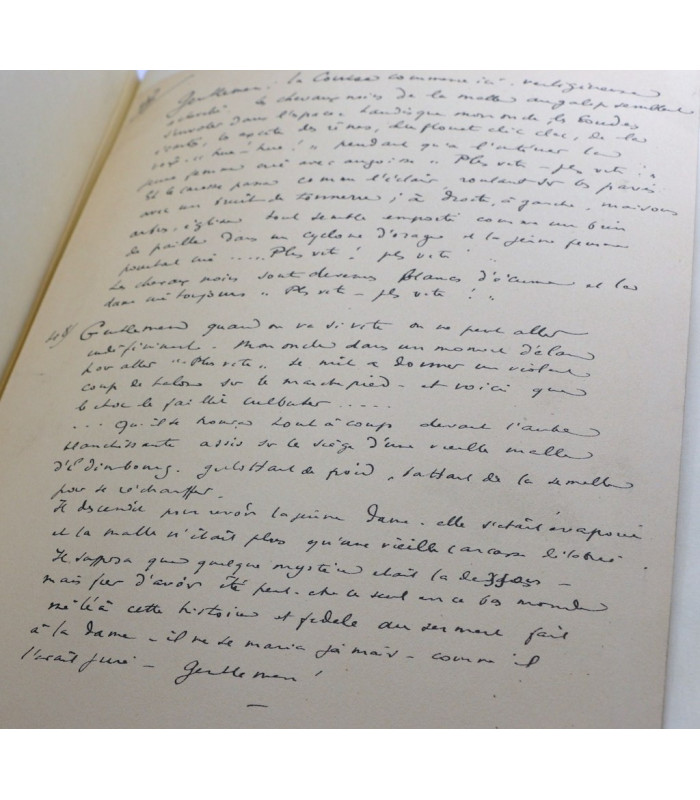 Gentlemen. la Course commence ici. vertigineuse
Les chevaux noirs de la malle au galop semblent
s'envoler dans l'espace. tandis que mon oncle les coudes
excite les rênes, du fouet clic clac, de la
voix. "hue! hue!" pendant qu'à l'intérieur la
jeune femme crie avec angoisse "Plus vite - plus vite!"
Et le carosse passe comme l'éclair roulant sur les pavés
avec un bruit de tonnerre; à droite, à gauche, maisons
arbres, église tout semble emporté comme un brin
de paille dans un cyclone d'orage et la jeune femme
crie ..... Plus vite! plus vite!
Les chevaux noirs sont devenus blancs d'écume et la
dame crie toujours "Plus vite - plus vite!"
49/ Gentlemen quand on va si vite on ne peut aller
indéfiniment. Mon oncle dans un moment d'élan
pour aller "Plus vite" se mit à donner un violent
coup de talons sur le marchepied - et voici que
le choc le faillit culbuter .....
... Qu'il se trouva tout à coup devant l'aube
blanchissante assis sur le siège d'une vieille malle
d'Edimbourg. grelottant de froid, battant de la semelle
pour se réchauffer.
Il descendit pour revoir la jeune Dame. elle s'était évaporée
et la malle n'était plus qu'une vieille carcasse délabrée.
Il supposa que quelque mystère était là dessous -
mais fier d'avoir été peut-être le seul en ce bas monde
mêlé à cette histoire et fidèle au serment fait
à la Dame - il ne se maria jamais - comme il
l'avait juré - Gentlemen!